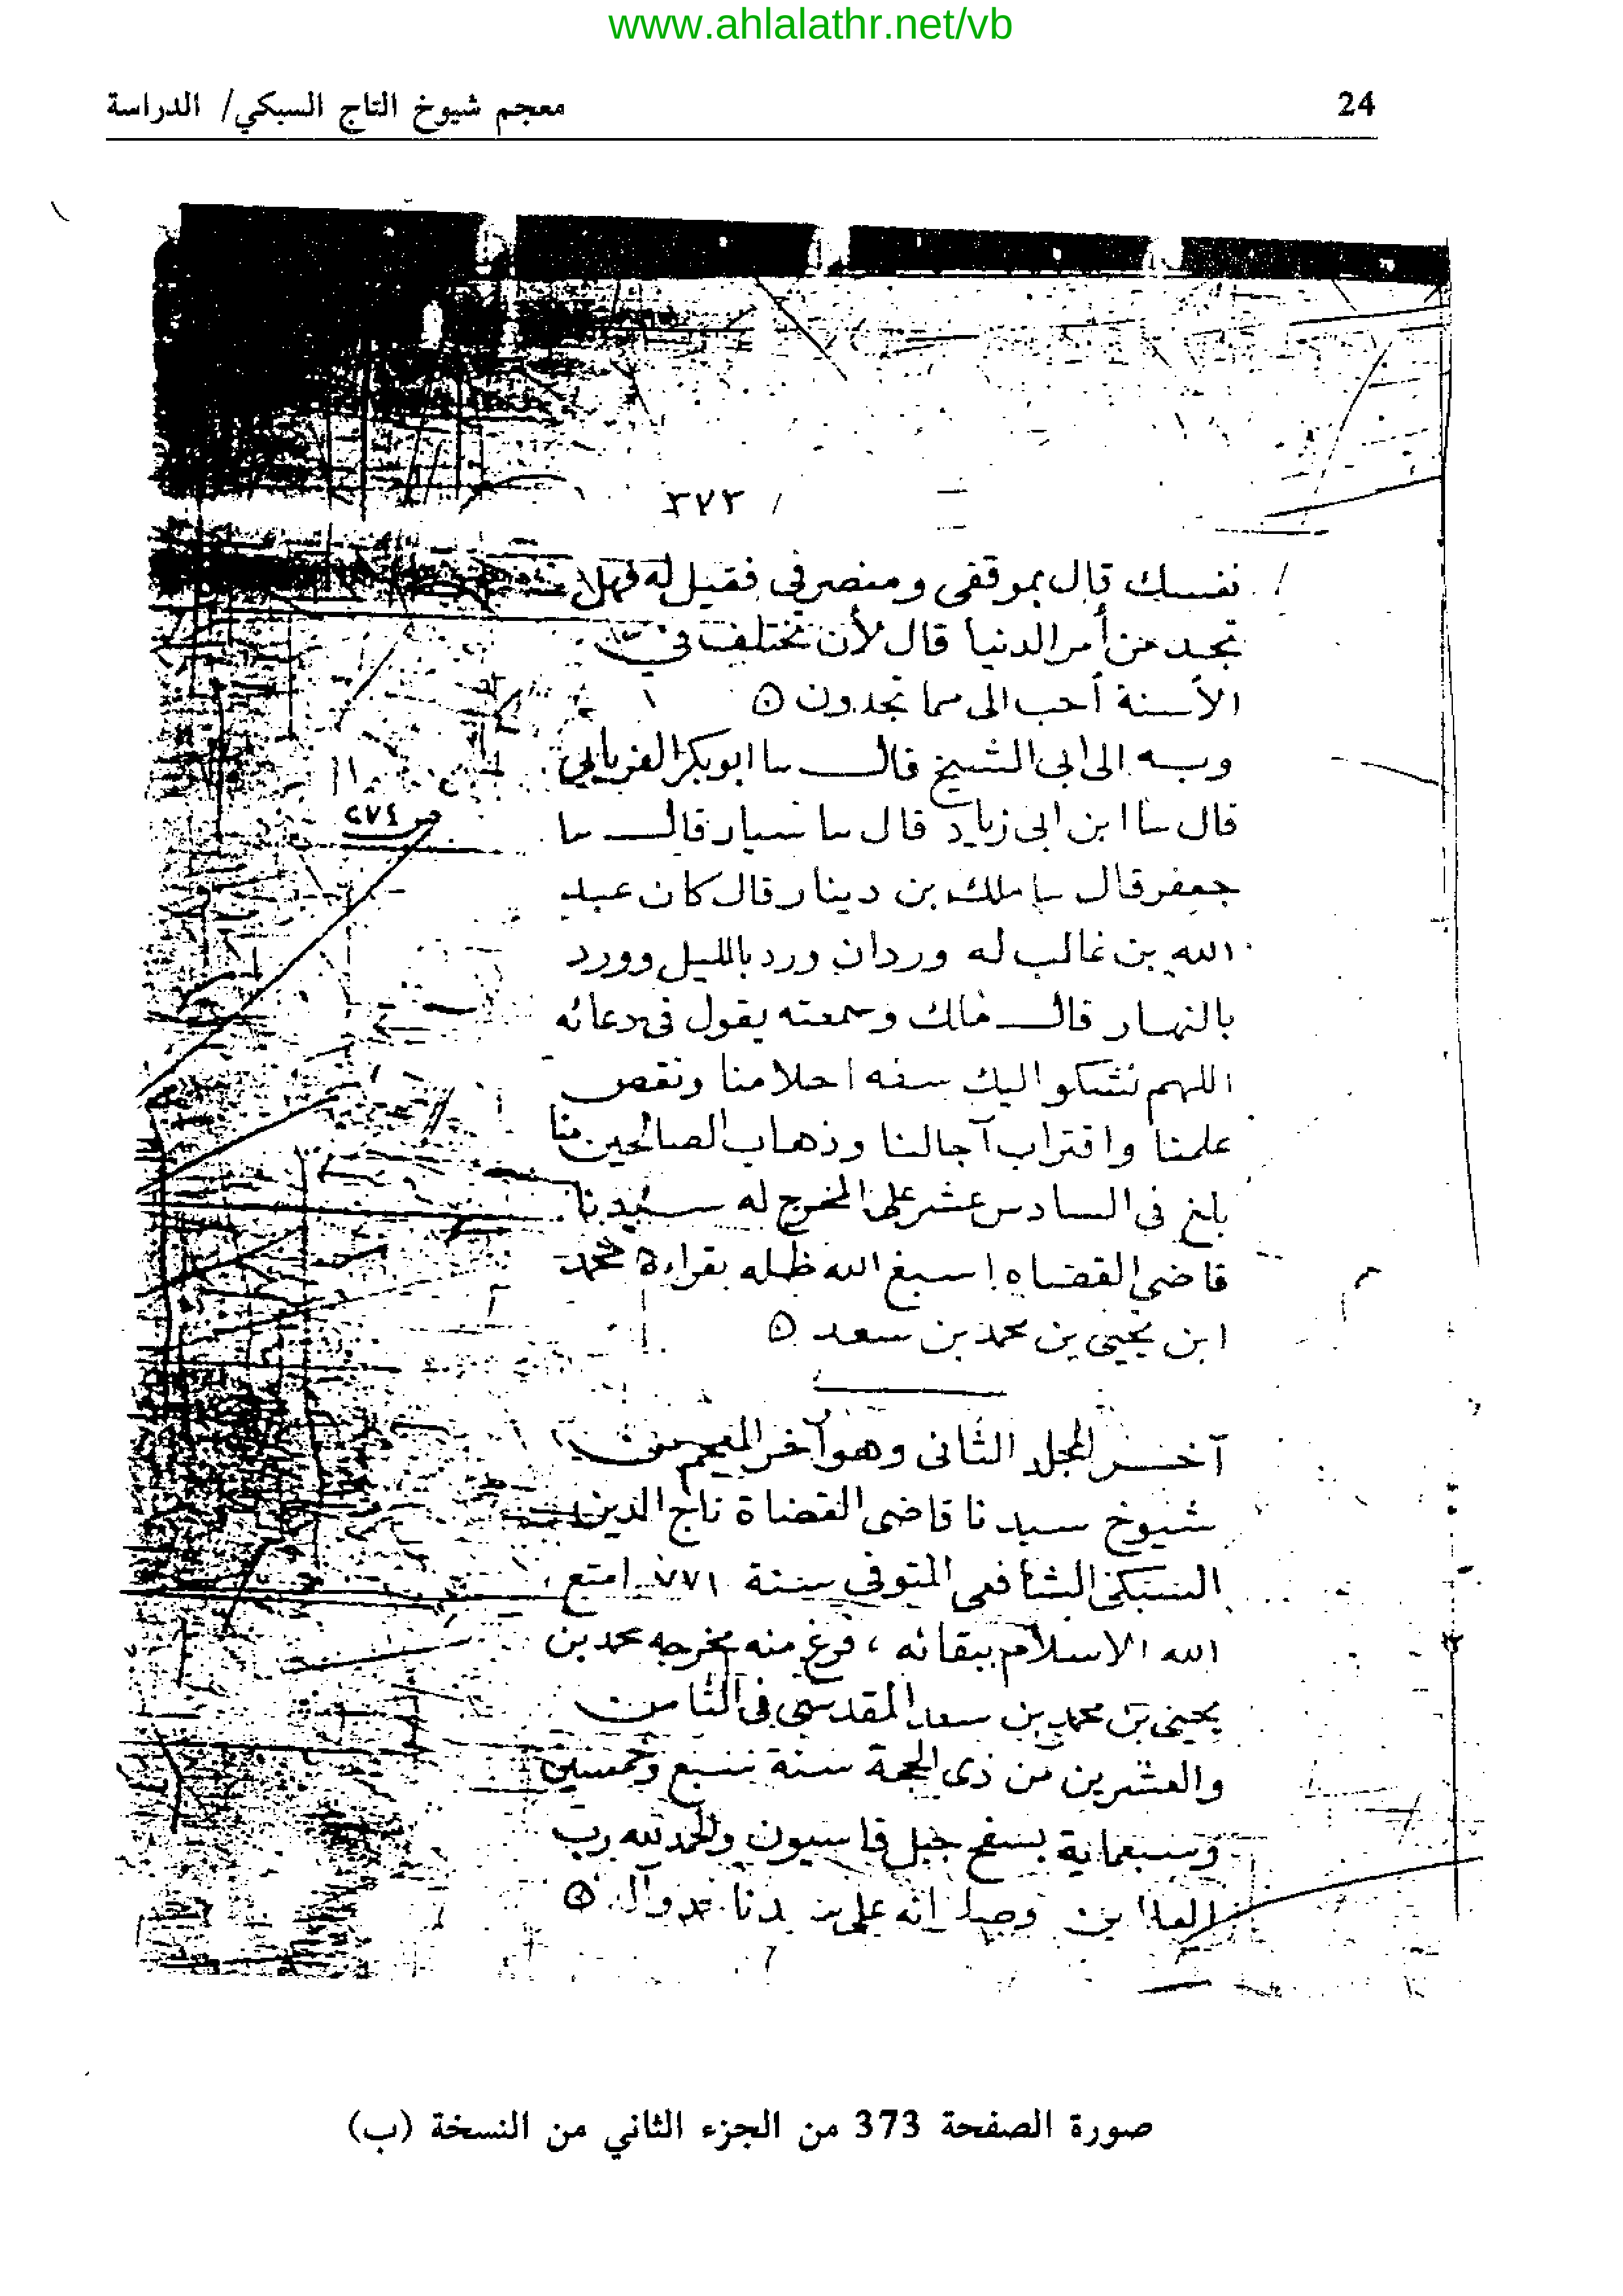 www.ahlalathr.net/vb
24 معجم شيوخ التاج السبكي/ الدراسة
٣٧٣
نفسك قال بموقفي ومنصرفي فقيل له فهلا
تجد من أمر الدنيا قال لأن تختلف في
الأسنة أحب الى مما تجدون ۞
وبه الى ابى الشيخ قال سا ابو بكر الفريابي
قال سا ابن ابى زياد قال سا سيار قال سا
ص ٢٧٤
جعفر قال سا ملك بن دينار قال كان عبد
الله بن غالب له وردان ورد بالليل وورد
بالنهار قال مالك وسمعته يقول فى دعائه
اللهم نشكو اليك سفه احلامنا ونقص
علمنا واقتراب آجالنا وذهاب الصالحين منا
بلغ فى السادس عشر على المخرج له سيدنا
قاضى القضاه اسبغ الله ظله بقراءة محمد
ابن يحيى بن محمد بن سعد ۞
آخر المجلد الثانى وهو آخر المعجم من
شيوخ سيدنا قاضى القضاة تاج الدين
السبكى الشافعى المتوفى سنة ٧٧١ امتع
الله الاسلام ببقائه ، فرغ منه مخرجه محمد بن
يحيى بن محمد بن سعد المقدسى فى الثامن
والعشرين من ذى الحجة سنة سبع وخمسين
وسبعماية بسفح جبل قاسيون والحمد لله رب
صورة الصفحة 373 من الجزء الثاني من النسخة (ب)